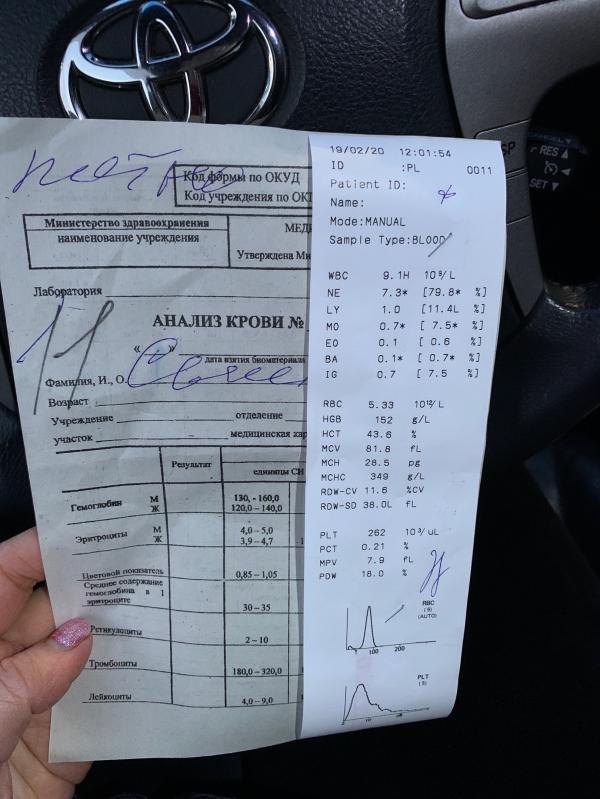 Код формы по ОКУД
Код учреждения по ОКП
Министерство здравоохранения
наименование учреждения
МЕДИ
Утверждена Ми
Лаборатория
АНАЛИЗ КРОВИ №
дата взятия биоматериала
Фамилия, И., О.
Возраст
Учреждение отделение
участок медицинская кар
Результат
единицы СИ
Гемоглобин М 130, - 160,0
Ж 120,0 – 140,0
Эритроциты М 4,0 – 5,0
Ж 3,9 – 4,7
Цветовой показатель 0,85 – 1,05
Среднее содержание
гемоглобина в 1
эритроците 30 – 35
Ретикулоциты 2 – 10
Тромбоциты 180,0 – 320,0
Лейкоциты 4,0 – 9,0
19/02/20 12:01:54
ID :PL 0011
Patient ID:
Name:
Mode:MANUAL
Sample Type:BLOOD
WBC 9.1H 10⁹/L
NE 7.3* [79.8* %]
LY 1.0 [11.4L %]
MO 0.7* [ 7.5* %]
EO 0.1 [ 0.6 %]
BA 0.1* [ 0.7* %]
IG 0.7 [ 7.5 %]
RBC 5.33 10¹²/L
HGB 152 g/L
HCT 43.6 %
MCV 81.8 fL
MCH 28.5 pg
MCHC 349 g/L
RDW-CV 11.6 %CV
RDW-SD 38.0L fL
PLT 262 10³/uL
PCT 0.21 %
MPV 7.9 fL
PDW 18.0 %
RBC
(S)
(AUTO)
100 200
PLT
(S)
RES
SET